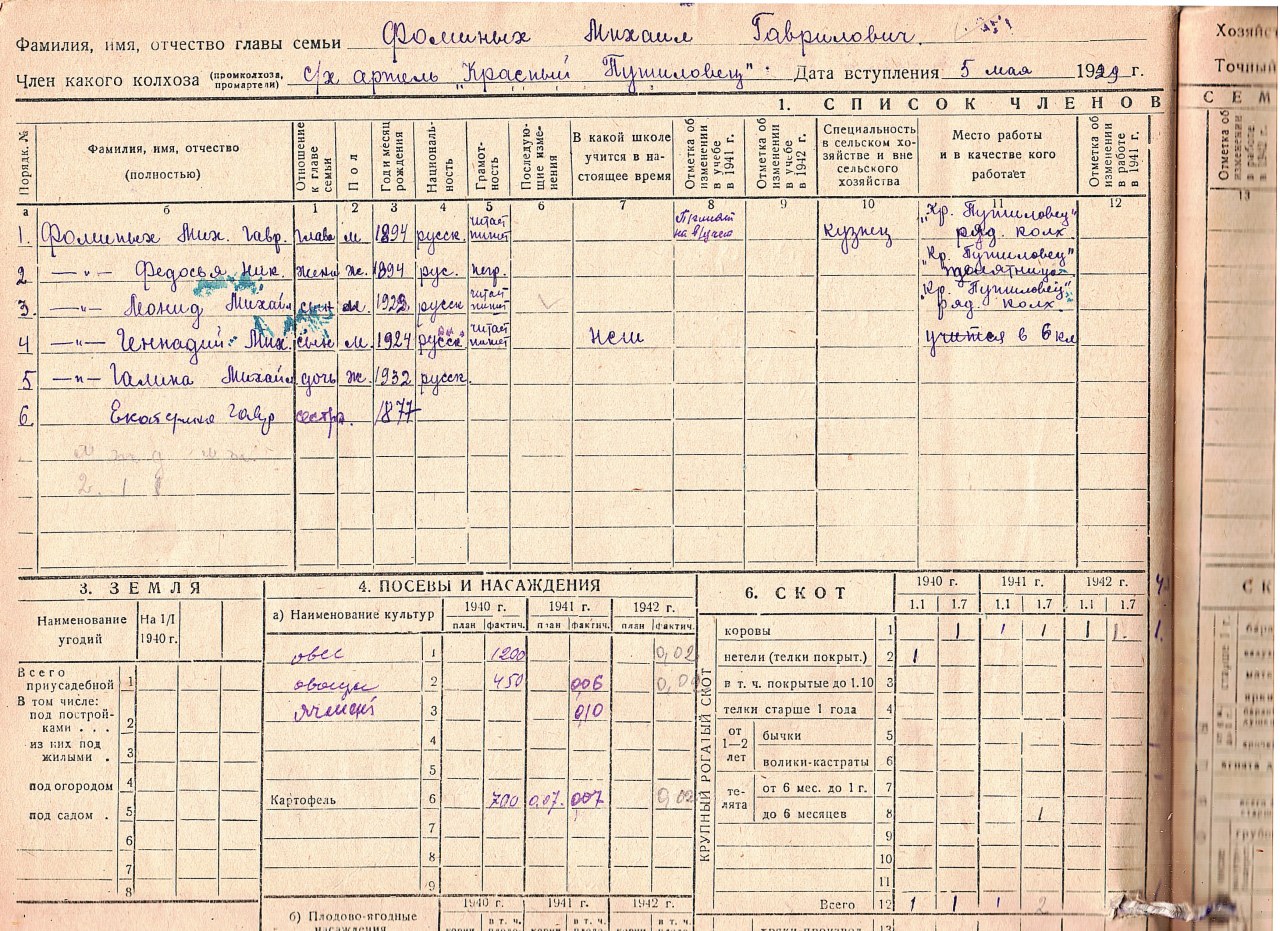 Фамилия, имя, отчество главы семьи Фоминых Михаил Гаврилович.
Член какого колхоза (промколхоза, промартели) с/х артель "Красный Путиловец". Дата вступления 5 мая 1929 г.
1. СПИСОК ЧЛЕНОВ
Порядк. № Фамилия, имя, отчество (полностью) Отношение к главе семьи Пол Год и месяц рождения Националь-ность Грамот-ность Последую-щие изме-нения В какой школе учится в на-стоящее время Отметка об изменении в учебе в 1941 г. Отметка об изменении в учебе в 1942 г. Специальность в сельском хо-зяйстве и вне сельского хозяйства Место работы и в качестве кого работает Отметка об изменении в работе в 1941 г.
а б 1 2 3 4 5 6 7 8 9 10 11 12
1. Фоминых Мих. Гавр. глава м 1894 русск. читает пишет кузнец "Кр. Путиловец" ряд. колх.
2 —"— Федосья Ник. жена ж. 1894 рус. негр. "Кр. Путиловец"
3. —"— Леонид Михайл сын м. русск читает пишет "Кр. Путиловец" ряд. колх.
4 —"— Геннадий Мих. сын м. 1924 русск читает пишет учится в 6 кл
5 —"— Галина Михайл дочь ж. 1932 русск.
6. Екатерина Гавр сестра. 1877
3. ЗЕМЛЯ
Наименование угодий На 1/I 1940 г.
Всего приусадебной 1
В том числе:
под построй-ками . . . 2
из них под жилыми . 3
под огородом 4
под садом . 5
6
7
8
4. ПОСЕВЫ И НАСАЖДЕНИЯ
а) Наименование культур 1940 г. 1941 г. 1942 г.
план фактич. план фактич. план фактич.
овес 1 1200 0,02
овощи 2 450 0,06
ячмень 3 0,10
4
5
Картофель 6 700 0,07. 0,07 0,02
7
8
9
1940 г. 1941 г. 1942 г.
б) Плодово-ягодные насаждения
в т. ч. в т. ч. в т. ч.
6. СКОТ
1940 г. 1941 г. 1942 г.
1.1 1.7 1.1 1.7 1.1 1.7
КРУПНЫЙ РОГАТЫЙ СКОТ
коровы 1 1 1 1 1 1.
нетели (телки покрыт.) 2 1
в т. ч. покрытые до 1.10 3
телки старше 1 года 4
от 1—2 лет бычки 5
волики-кастраты 6
те-лята от 6 мес. до 1 г. 7
до 6 месяцев 8 1
9
10
11
Всего 12 1 1 1 2
13
Точный
СЕМ
Отметка об изменении в работе
13
СК